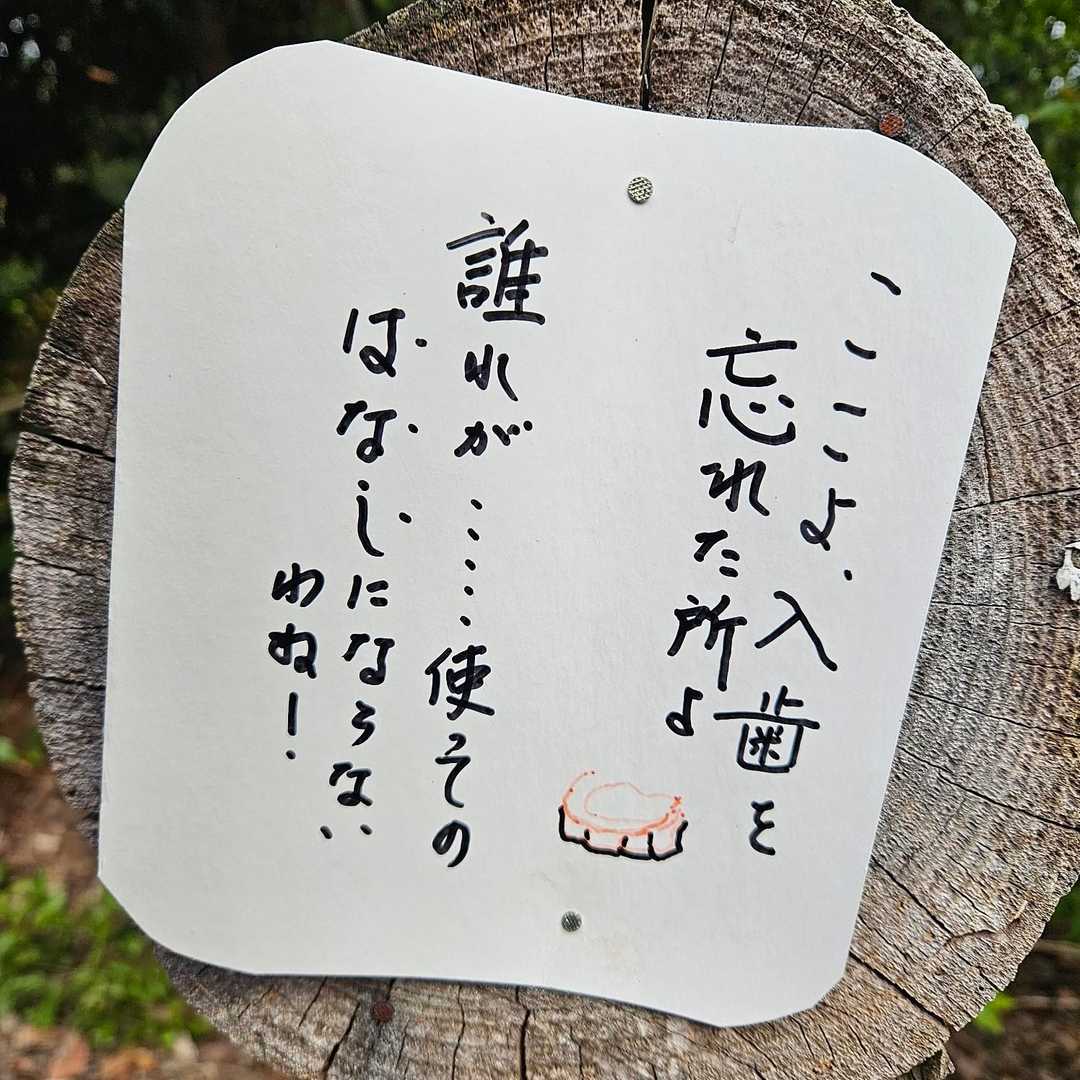 ここよ、入歯を
忘れた所よ
誰れが……使その
はなしにならない
わね!